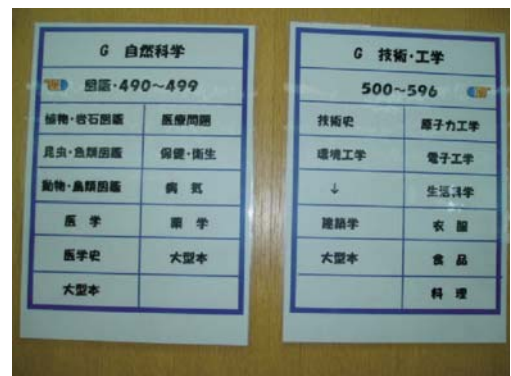 G 自然科学
図鑑・490~499
植物・岩石図鑑 医療問題
昆虫・魚類図鑑 保健・衛生
動物・鳥類図鑑 病気
医学 薬学
医学史 大型本
大型本
G 技術・工学
500~596
技術史 原子力工学
環境工学 電子工学
↓ 生活科学
建築学 衣服
大型本 食品
料理